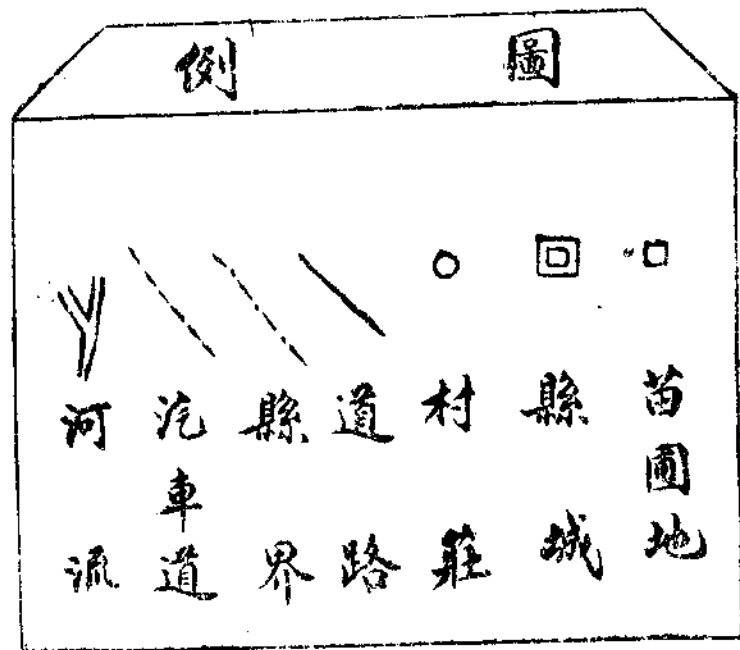 圖例
苗圃地
縣城
村莊
道路
縣界
汽車道
河流